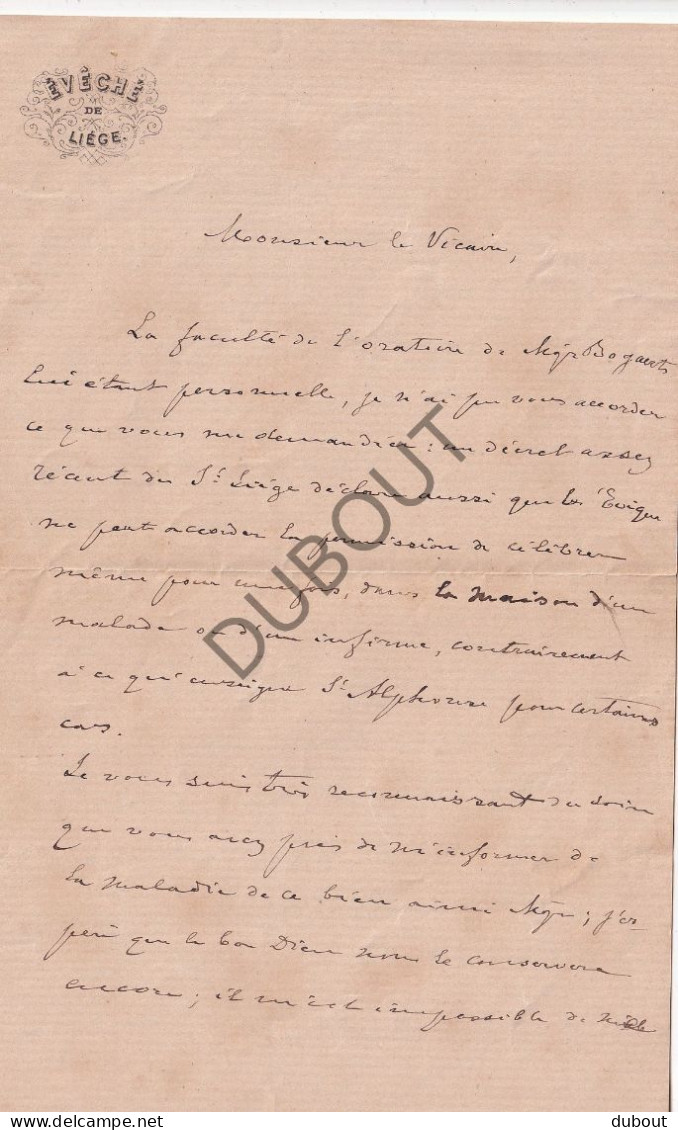 EVÊCHÉ
DE
LIÉGE.
Monsieur le Vicaire,
La faculté de l'oratoire de Mgr Bogaerts
lui étant personnelle, je n'ai pu vous accorder
ce que vous me demandiez : un décret assez
récent du St Siége déclare aussi que les Evêque
ne peut accorder la permission de célébrer
même pour une fois, dans la maison d'un
malade ou d'un infirme, contrairement
à ce qu'enseigne St Alphonse pour certains
cas.
Je vous suis très reconnaissant du soin
que vous avez pris de m'informer de
la maladie de ce bien aimé Mgr ; j'es-
père que le bon Dieu nous le conservera
encore ; il m'est impossible de
DUBOUT
delcampe.net
dubout